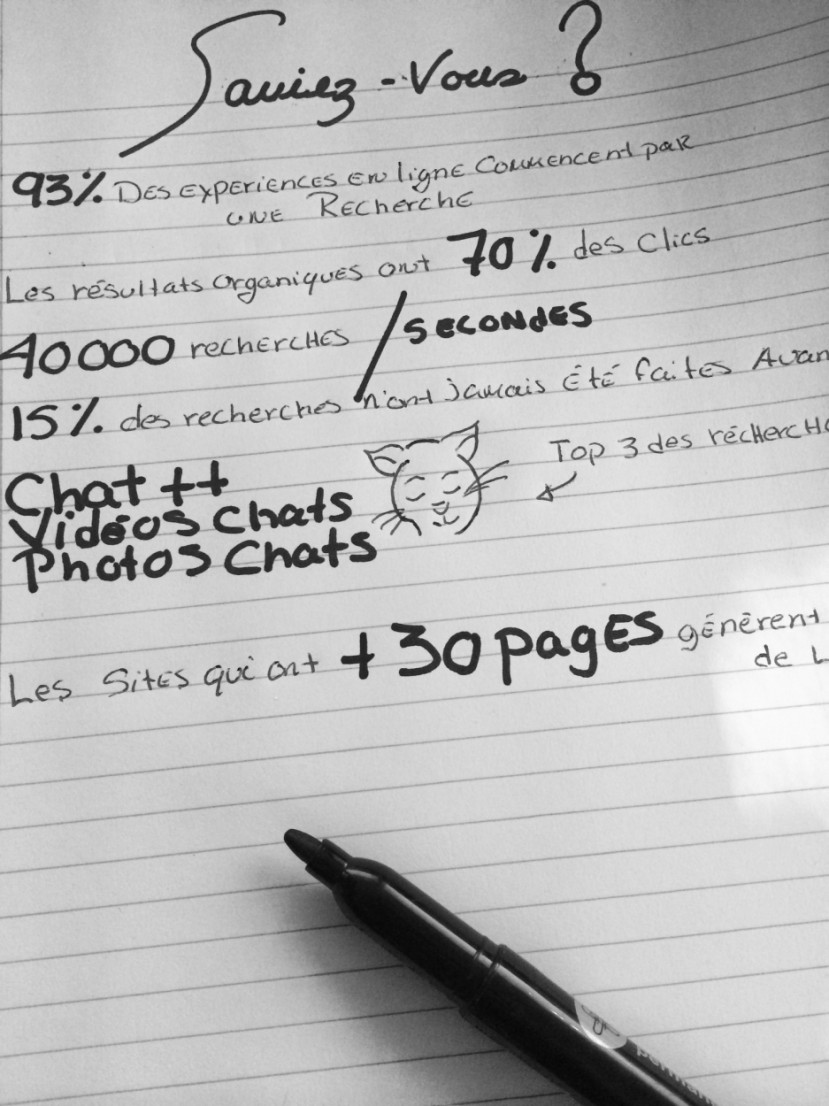 Saviez-Vous ?
93% Des experiences en ligne commencent par
une Recherche
Les résultats organiques ont 70% des clics
40000 recherches / secondes
15% des recherches n'ont jamais été faites
Chat ++
Top 3 des
Vidéos chats
Photos chats
Les sites qui ont +30 pages génèrent
de